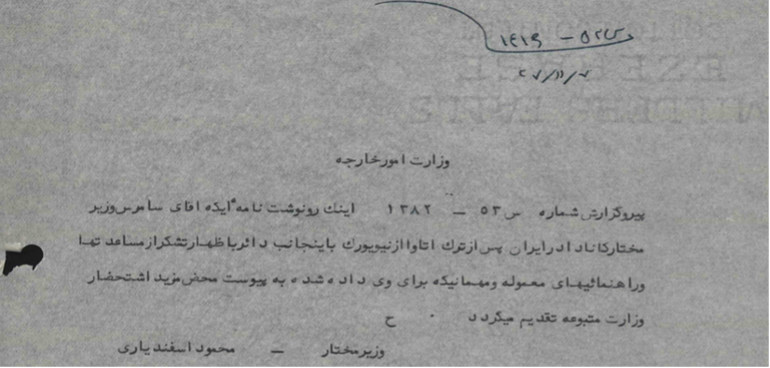 ۱۴۱۹ – ۵۲س
وزارت امورخارجه
پیروگزارش شماره س ۵۳ – ۱۳۸۲ اینك رونوشت نامه ایکه اقای سامرس وزیر
مختارکانادا درایران پس ازترك اتاوا از نیویورك باینجانب دائرباظهارتشکرازمساعدتها
وراهنمائیهای معموله ومهمانیکه برای وی داده شده به پیوست محض مزید اشتحضار
وزارت متبوعه تقدیم میگردد ح
وزیرمختار – محمود اسفندیاری